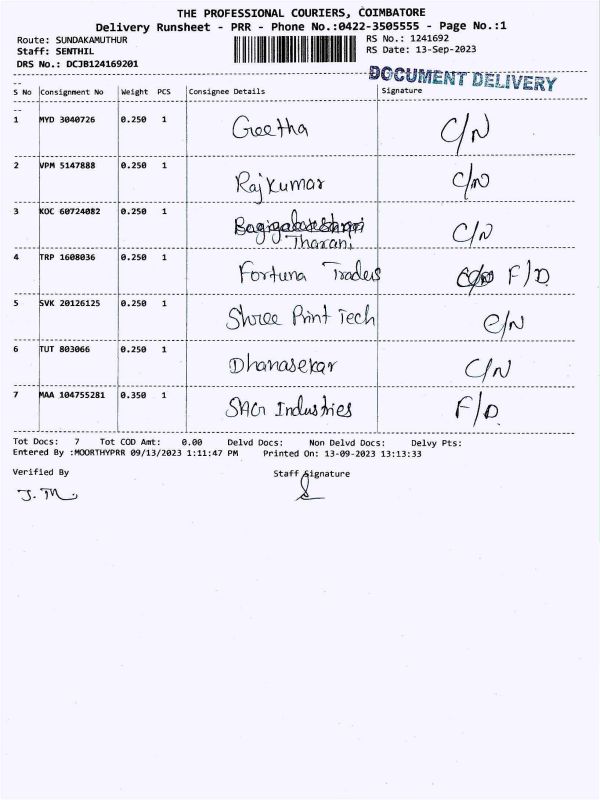 THE PROFESSIONAL COURIERS, COIMBATORE
Delivery Runsheet - PRR - Phone No.:0422-3505555 - Page No.:1
Route: SUNDAKAMUTHUR RS No.: 1241692
Staff: SENTHIL RS Date: 13-Sep-2023
DRS No.: DCJB124169201
DOCUMENT DELIVERY
S No Consignment No Weight PCS Consignee Details Signature
1 MYD 3040726 0.250 1 Geetha C/N
2 VPM 5147888 0.250 1 Rajkumar C/N
3 KOC 60724082 0.250 1 C/N
Tharani
4 TRP 1608036 0.250 1 Fortuna Traders F/D
5 SVK 20126125 0.250 1 Shree Print Tech C/N
6 TUT 803066 0.250 1 Dhanasekar C/N
7 MAA 104755281 0.350 1 SAG Industries F/D
Tot Docs: 7 Tot COD Amt: 0.00 Delvd Docs: Non Delvd Docs: Delvy Pts:
Entered By :MOORTHYPRR 09/13/2023 1:11:47 PM Printed On: 13-09-2023 13:13:33
Verified By Staff Signature